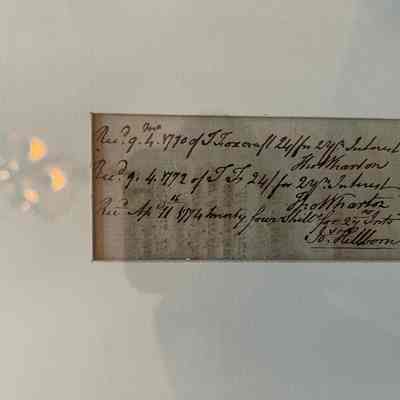 Rec.d 9. 4. 1770 of T Foxcroft 24/ for 2 y.rs Interest
Tho Wharton
Rec.d 9. 4. 1772 of T F 24/ for 2 y.rs Interest
Tho Wharton
Rec.d Ap.l 11th 1774 twenty four Shill.s for 2 y.rs Int.s
Hillborn